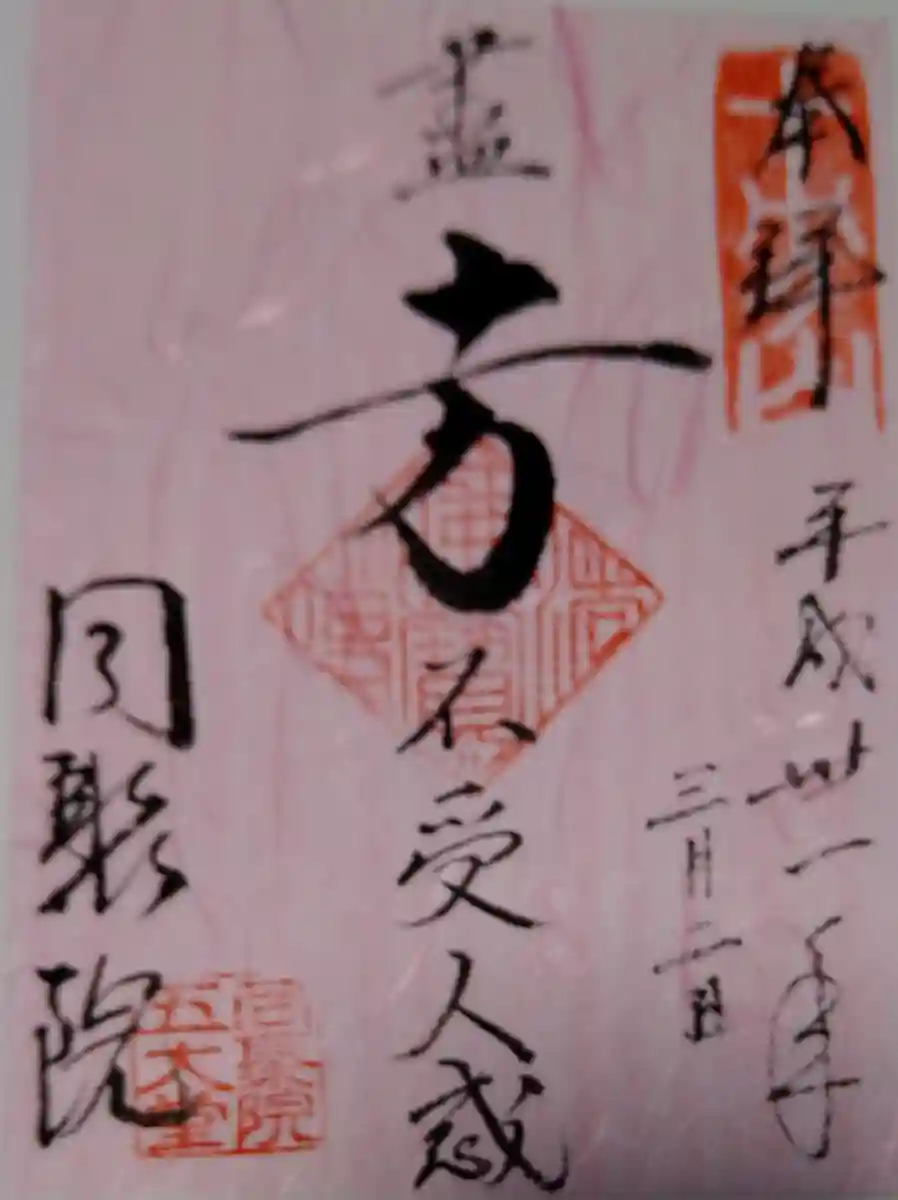 奉拝
平成卅一年
三月二日
不受人惑
同聚院
同聚院
五大堂